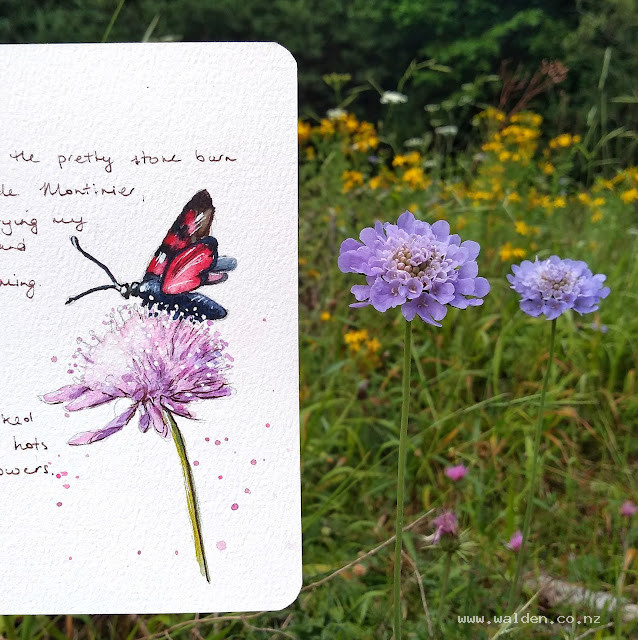 the pretty stone barn
de Montinier,
ying my
and
ing.
ked
hots
owers.
www.walden.co.nz